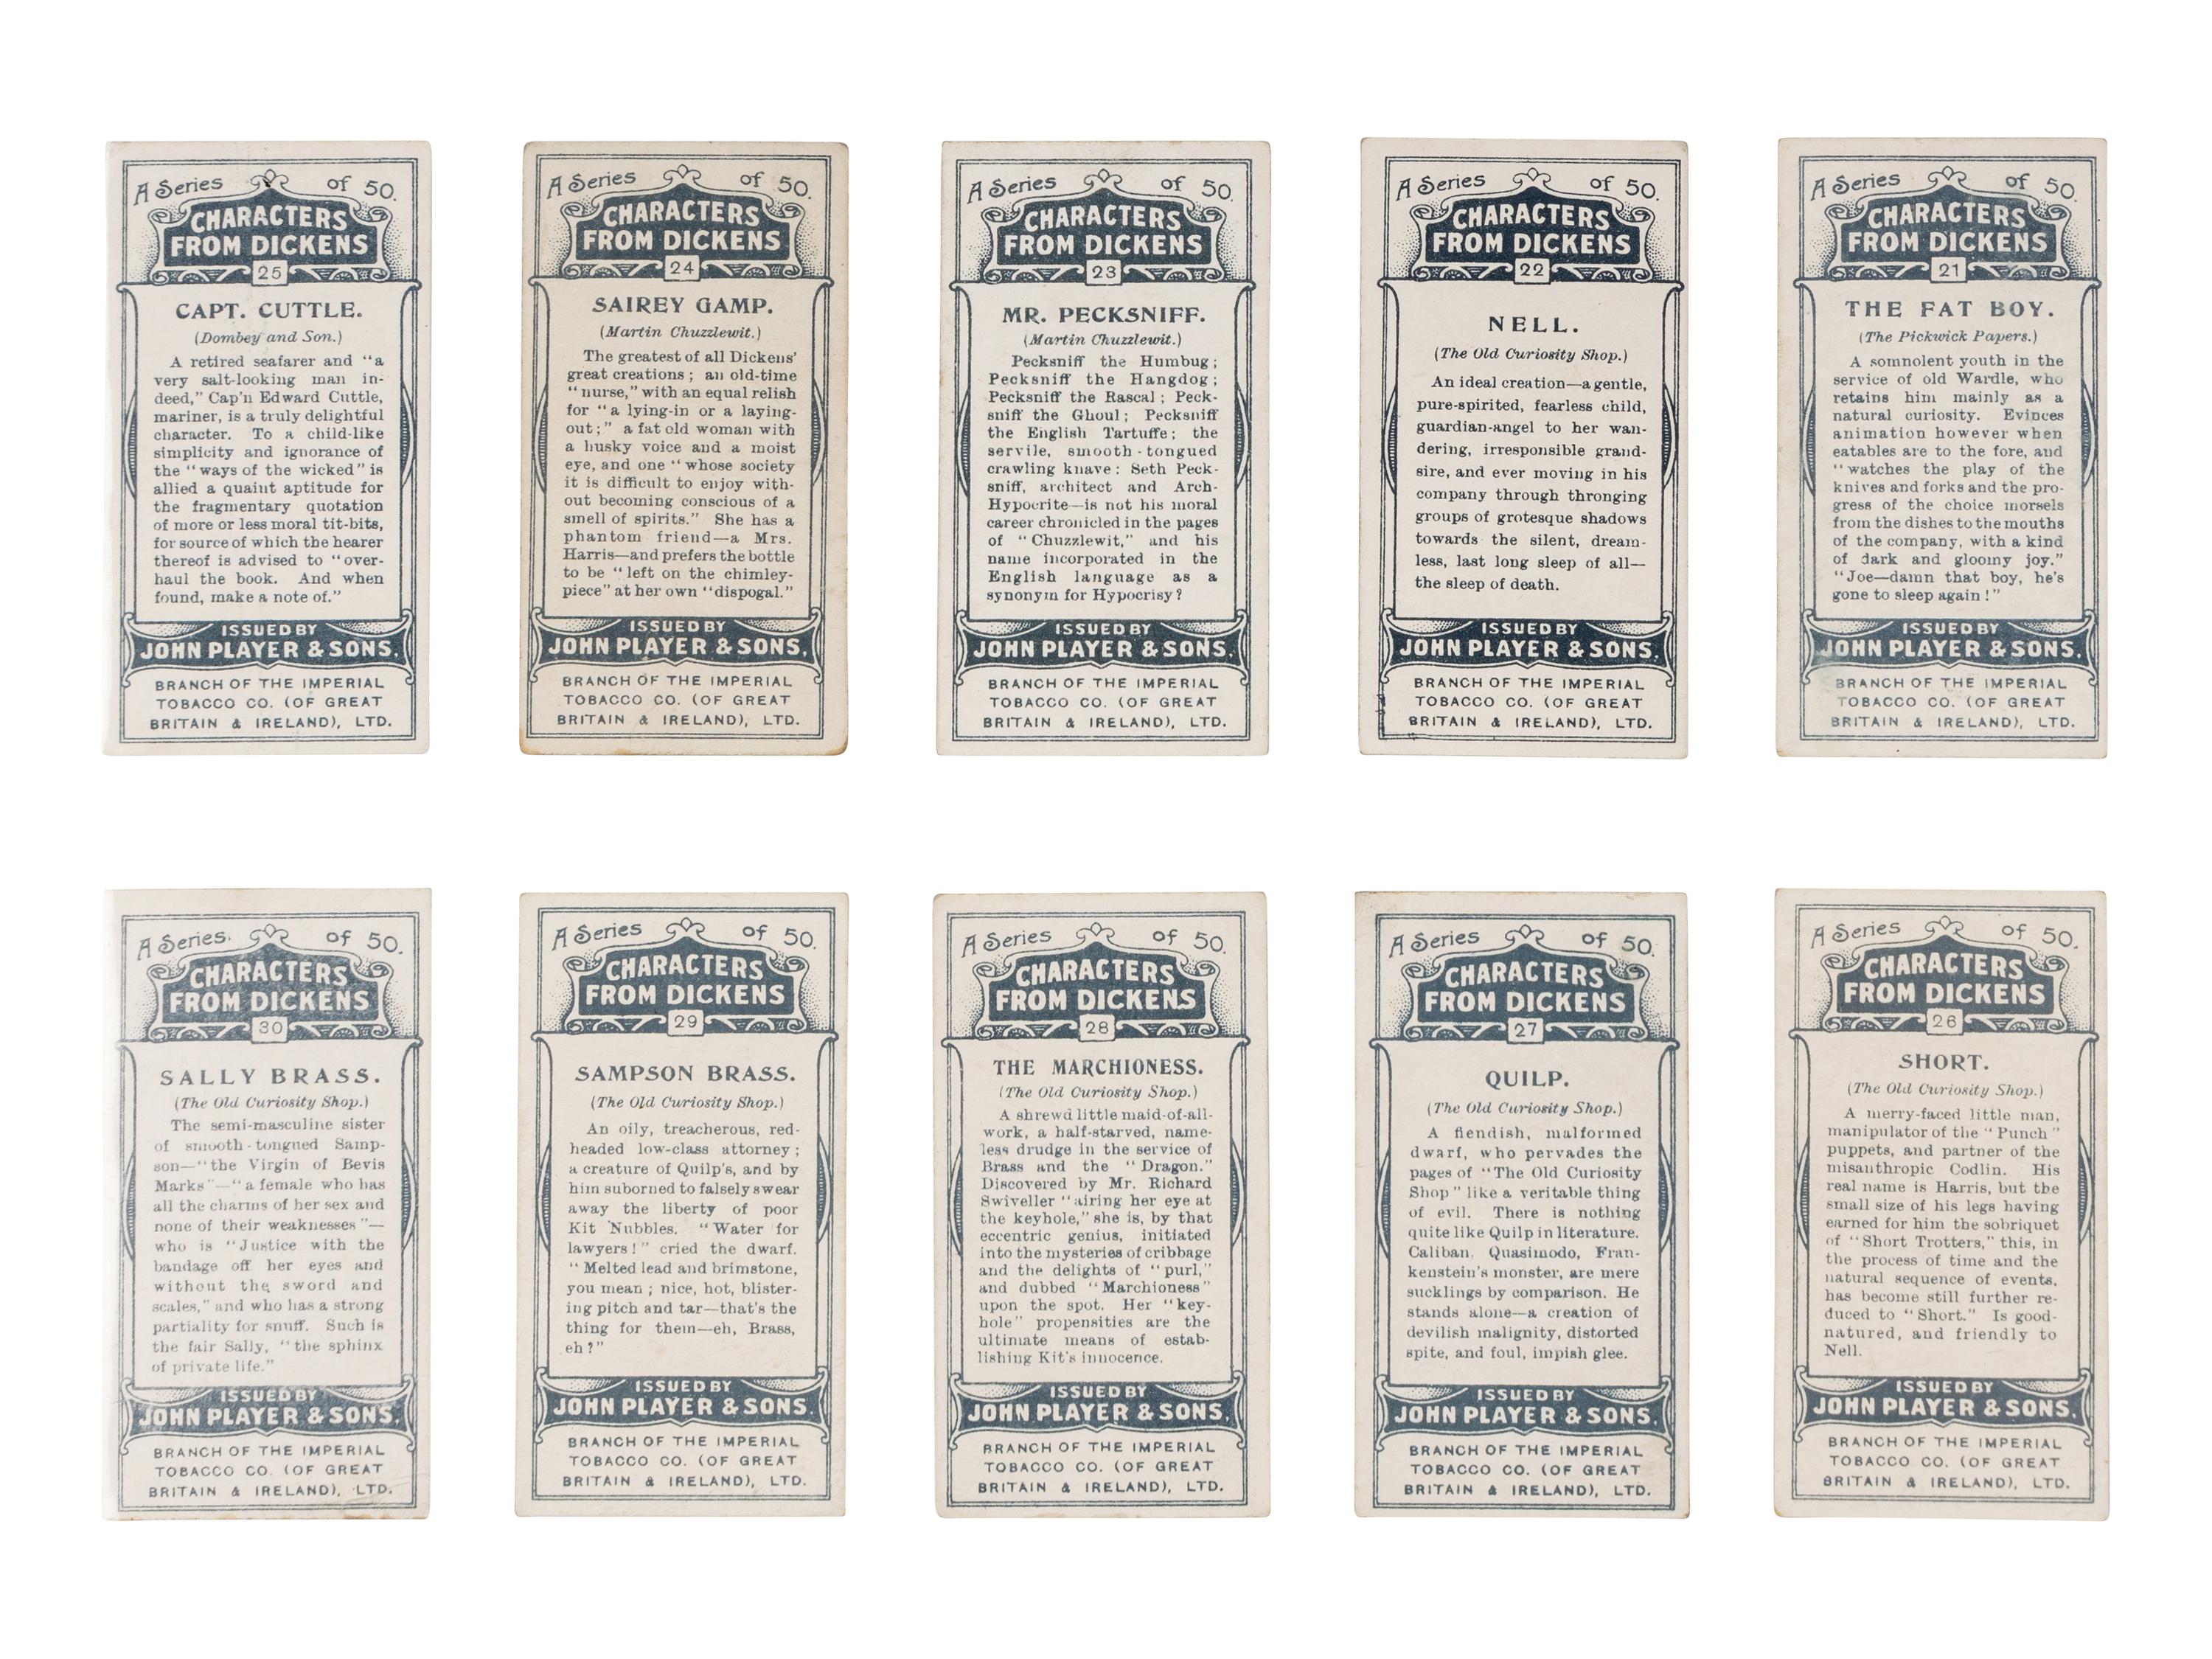 A Series of 50.
CHARACTERS
FROM DICKENS
25
CAPT. CUTTLE.
(Dombey and Son.)
A retired seafarer and "a
very salt-looking man in-
deed," Cap'n Edward Cuttle,
mariner, is a truly delightful
character. To a child-like
simplicity and ignorance of
the "ways of the wicked" is
allied a quaint aptitude for
the fragmentary quotation
of more or less moral tit-bits,
for source of which the hearer
thereof is advised to "over-
haul the book. And when
found, make a note of."
ISSUED BY
JOHN PLAYER & SONS,
BRANCH OF THE IMPERIAL
TOBACCO CO. (OF GREAT
BRITAIN & IRELAND), LTD.
A Series of 50.
CHARACTERS
FROM DICKENS
24
SAIREY GAMP.
(Martin Chuzzlewit.)
The greatest of all Dickens'
great creations; an old-time
"nurse," with an equal relish
for "a lying-in or a laying-
out;" a fat old woman with
a husky voice and a moist
eye, and one "whose society
it is difficult to enjoy with-
out becoming conscious of a
smell of spirits." She has a
phantom friend—a Mrs.
Harris—and prefers the bottle
to be "left on the chimley-
piece" at her own "dispogal."
ISSUED BY
JOHN PLAYER & SONS,
BRANCH OF THE IMPERIAL
TOBACCO CO. (OF GREAT
BRITAIN & IRELAND), LTD.
A Series of 50.
CHARACTERS
FROM DICKENS
23
MR. PECKSNIFF.
(Martin Chuzzlewit.)
Pecksniff the Humbug;
Pecksniff the Hangdog;
Pecksniff the Rascal; Peck-
sniff the Ghoul; Pecksniff
the English Tartuffe; the
servile, smooth-tongued
crawling knave: Seth Peck-
sniff, architect and Arch-
Hypocrite—is not his moral
career chronicled in the pages
of "Chuzzlewit," and his
name incorporated in the
English language as a
synonym for Hypocrisy?
ISSUED BY
JOHN PLAYER & SONS,
BRANCH OF THE IMPERIAL
TOBACCO CO. (OF GREAT
BRITAIN & IRELAND), LTD.
A Series of 50.
CHARACTERS
FROM DICKENS
22
NELL.
(The Old Curiosity Shop.)
An ideal creation—a gentle,
pure-spirited, fearless child,
guardian-angel to her wan-
dering, irresponsible grand-
sire, and ever moving in his
company through thronging
groups of grotesque shadows
towards the silent, dream-
less, last long sleep of all—
the sleep of death.
ISSUED BY
JOHN PLAYER & SONS,
BRANCH OF THE IMPERIAL
TOBACCO CO. (OF GREAT
BRITAIN & IRELAND), LTD.
A Series of 50.
CHARACTERS
FROM DICKENS
21
THE FAT BOY.
(The Pickwick Papers.)
A somnolent youth in the
service of old Wardle, who
retains him mainly as a
natural curiosity. Evinces
animation however when
eatables are to the fore, and
"watches the play of the
knives and forks and the pro-
gress of the choice morsels
from the dishes to the mouths
of the company, with a kind
of dark and gloomy joy."
"Joe—damn that boy, he's
gone to sleep again!"
ISSUED BY
JOHN PLAYER & SONS,
BRANCH OF THE IMPERIAL
TOBACCO CO. (OF GREAT
BRITAIN & IRELAND), LTD.
A Series of 50.
CHARACTERS
FROM DICKENS
30
SALLY BRASS.
(The Old Curiosity Shop.)
The semi-masculine sister
of smooth-tongued Samp-
son—"the Virgin of Bevis
Marks"—"a female who has
all the charms of her sex and
none of their weaknesses"—
who is "Justice with the
bandage off her eyes and
without the sword and
scales," and who has a strong
partiality for snuff. Such is
the fair Sally, "the sphinx
of private life."
ISSUED BY
JOHN PLAYER & SONS,
BRANCH OF THE IMPERIAL
TOBACCO CO. (OF GREAT
BRITAIN & IRELAND), LTD.
A Series of 50.
CHARACTERS
FROM DICKENS
29
SAMPSON BRASS.
(The Old Curiosity Shop.)
An oily, treacherous, red-
headed low-class attorney;
a creature of Quilp's, and by
him suborned to falsely swear
away the liberty of poor
Kit Nubbles. "Water for
lawyers!" cried the dwarf.
"Melted lead and brimstone,
you mean; nice, hot, blister-
ing pitch and tar—that's the
thing for them—eh, Brass,
eh?"
ISSUED BY
JOHN PLAYER & SONS,
BRANCH OF THE IMPERIAL
TOBACCO CO. (OF GREAT
BRITAIN & IRELAND), LTD.
A Series of 50.
CHARACTERS
FROM DICKENS
28
THE MARCHIONESS.
(The Old Curiosity Shop.)
A shrewd little maid-of-all-
work, a half-starved, name-
less drudge in the service of
Brass and the "Dragon."
Discovered by Mr. Richard
Swiveller "airing her eye at
the keyhole," she is, by that
eccentric genius, initiated
into the mysteries of cribbage
and the delights of "purl,"
and dubbed "Marchioness"
upon the spot. Her "key-
hole" propensities are the
ultimate means of estab-
lishing Kit's innocence.
ISSUED BY
JOHN PLAYER & SONS,
BRANCH OF THE IMPERIAL
TOBACCO CO. (OF GREAT
BRITAIN & IRELAND), LTD.
A Series of 50.
CHARACTERS
FROM DICKENS
27
QUILP.
(The Old Curiosity Shop.)
A fiendish, malformed
dwarf, who pervades the
pages of "The Old Curiosity
Shop" like a veritable thing
of evil. There is nothing
quite like Quilp in literature.
Caliban, Quasimodo, Fran-
kenstein's monster, are mere
sucklings by comparison. He
stands alone—a creation of
devilish malignity, distorted
spite, and foul, impish glee.
ISSUED BY
JOHN PLAYER & SONS,
BRANCH OF THE IMPERIAL
TOBACCO CO. (OF GREAT
BRITAIN & IRELAND), LTD.
A Series of 50.
CHARACTERS
FROM DICKENS
26
SHORT.
(The Old Curiosity Shop.)
A merry-faced little man,
manipulator of the "Punch"
puppets, and partner of the
misanthropic Codlin. His
real name is Harris, but the
small size of his legs having
earned for him the sobriquet
of "Short Trotters," this, in
the process of time and the
natural sequence of events,
has become still further re-
duced to "Short." Is good-
natured, and friendly to
Nell.
ISSUED BY
JOHN PLAYER & SONS,
BRANCH OF THE IMPERIAL
TOBACCO CO. (OF GREAT
BRITAIN & IRELAND), LTD.